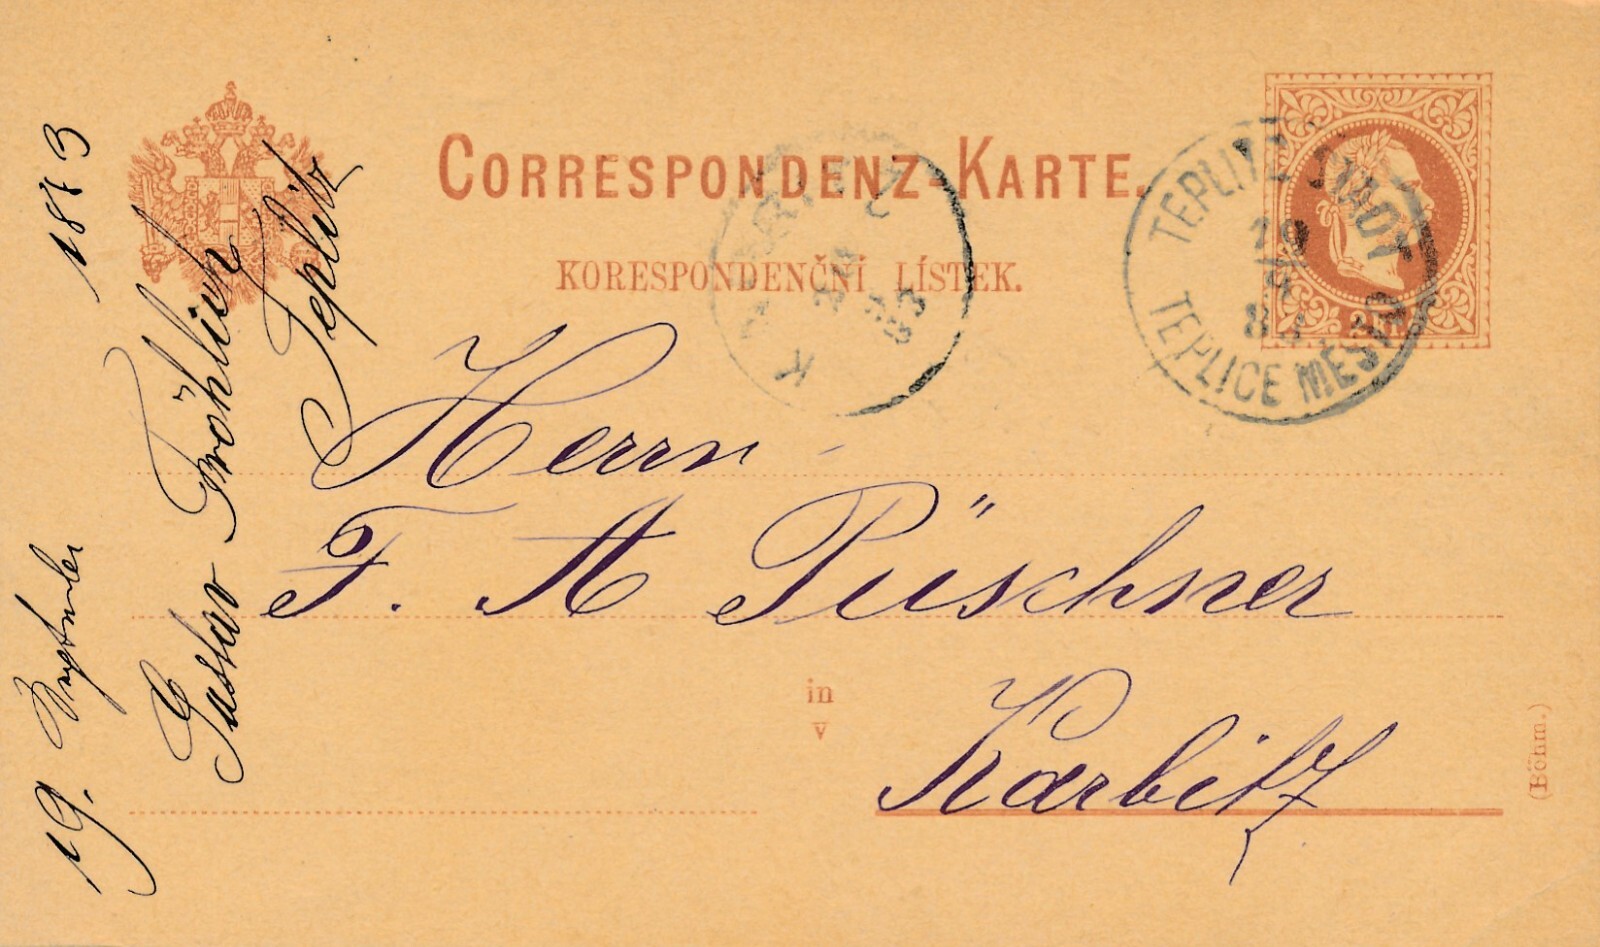 CORRESPONDENZ-KARTE.
KORESPONDENČNÍ LÍSTEK.
TEPLITZ STADT
19
9
83
TEPLICE MĚSTO
2 Kr.
Herrn
F. A Püschner
in
v
Karbitz
(Böhm.)
19. September 1883
Gustav Fröhlich
Teplitz